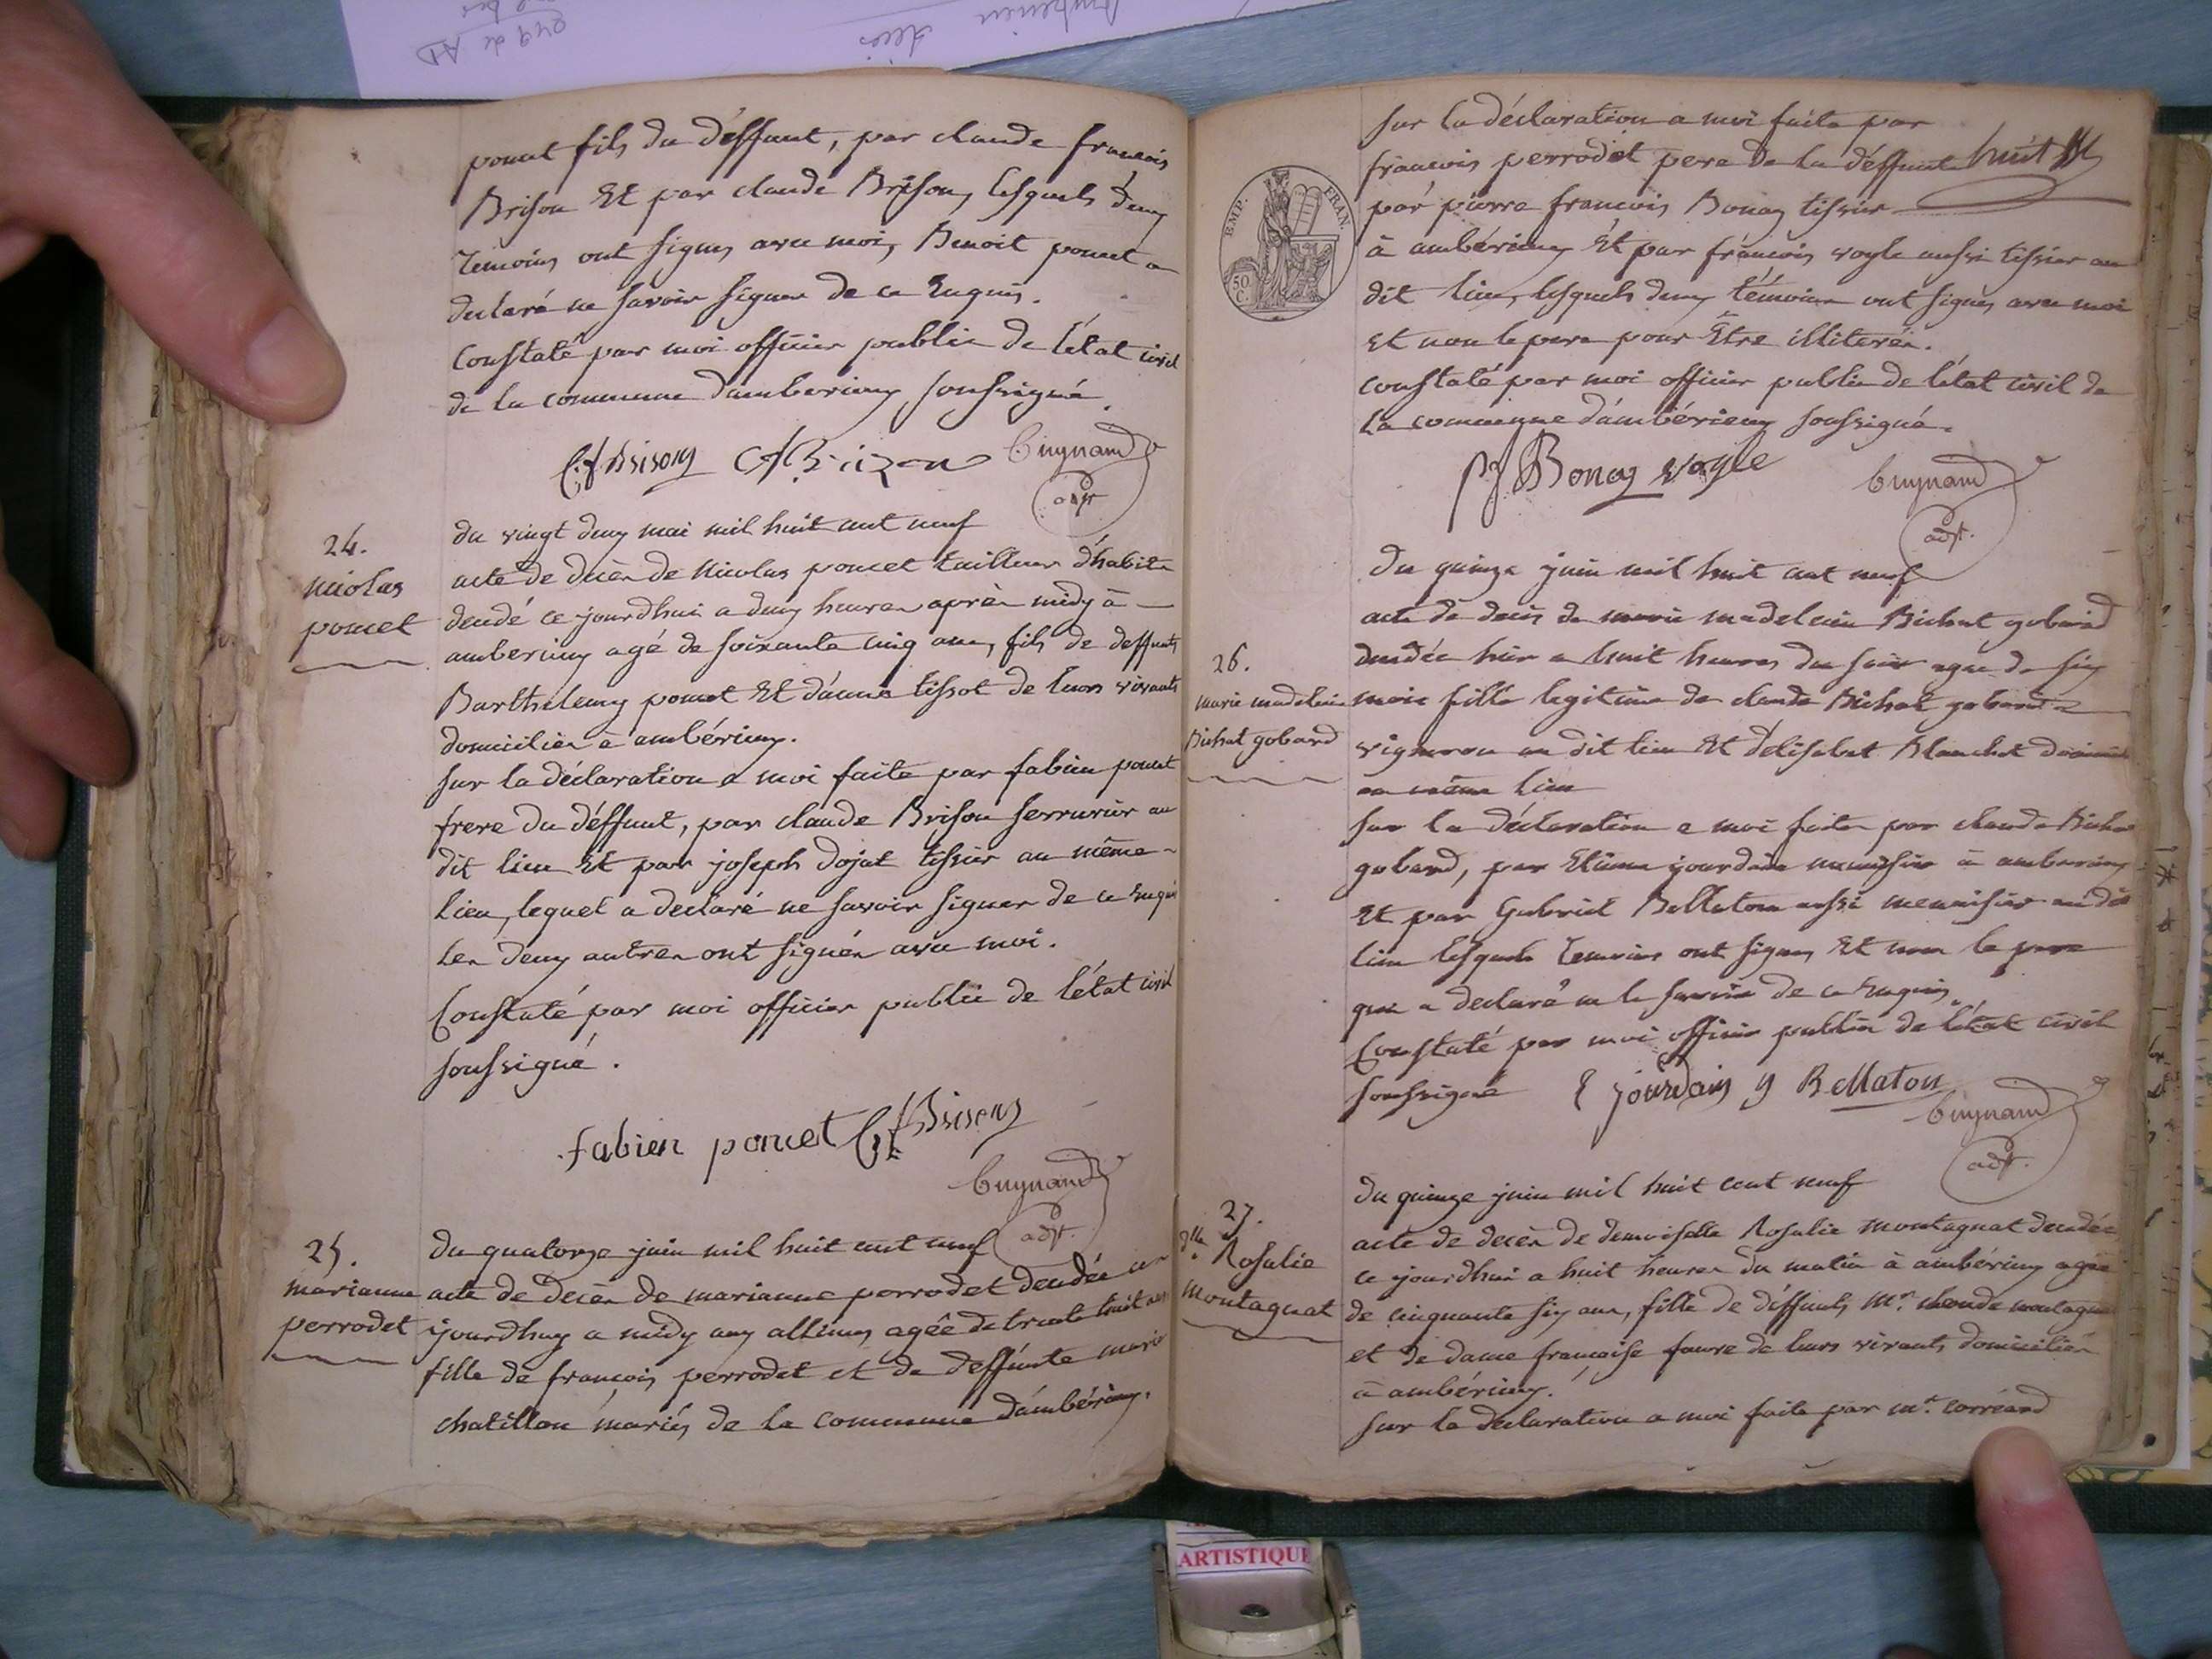 pomet fils du déffunt, par claude francois
Brison Et par claude Brison, lesquels deux
temoins ont signes avec moi, Benoit pomet a
declaré ne savoir signer de ce Enquis.
Constaté par moi officier public de l'état civil
de la commune d'amberieux soussigné.
C,f Brison CfBrizon Cuynand
adjt
24.
nicolas
poncet
du vingt deux mai mil huit cent neuf
acte de decès de Nicolas poncet tailleur d'habits
decedé ce jourdhui a deux heures après midy à
amberieux agé de soixante cinq ans, fils de deffunts
Barthelemy poncet Et d'anne tissot de leurs vivants
domiciliés à ambérieux.
sur la déclaration a moi faite par fabien poncet
frere du déffunt, par claude Brison serrurier au
dit lieu Et par joseph dojat tissier au même
lieu, lequel a declaré ne savoir signer de ce Enquis
les deux autres ont signés avec moi.
Constaté par moi officier public de l'état civil
soussigné.
fabien poncet C,f Brison
Cuynand
adjt.
25.
marianne
perrodet
du quatorze juin mil huit cent neuf
acte de decès de marianne perrodet decedée ce
jourdhuy a midy aux allimes agée de trente huit ans
fille de françois perrodet et de deffunte marie
chatillon mariés de la commune d'ambérieux.
sur la déclaration a moi faite par
francois perrodet pere de la déffunte huit
par pierre francois Bonaz tissier
à ambérieux Et par francois voyle aussi tissier au
dit lieu, lesquels deux témoins ont signés avec moi
Et non le pere pour Être illiterés.
constaté par moi officier public de l'état civil de
la commune d'ambérieux soussigné.
EMP. FRAN.
50 C.
pf Bonaz voyle Cuynand
adjt.
26.
marie madeleine
Bichat gobard
du quinze juin mil huit cent neuf
acte de decès de marie madeleine Bichat gobard
decedée hier a huit heures du soir agée de six
mois fille legitime de claude Bichat gobard
vigneron au dit lieu Et d'elisabet Blanchet
au même lieu
sur la déclaration a moi faite par claude Bichat
gobard, par Etienne jourdain menuisier à amberieux
Et par Gabriel Bellaton aussi menuisier au dit
lieu lesquels temoins ont signes Et non le pere
qui a declaré ne le savoir de ce Enquis.
Constaté par moi officier public de l'état civil
soussigné E jourdain g Bellaton
Cuynand
adjt.
27.
dlle Rosalie
montagnat
du quinze juin mil huit cent neuf
acte de decès de demoiselle Rosalie montagnat decedée
ce jourdhui a huit heures du matin à ambérieux agée
de cinquante six ans, fille de déffunts Mr. claude montagnat
et de dame francaise favre de leurs vivants domiciliés
à ambérieux.
sur la declaration a moi faite par mr. corréard
ARTISTIQUE